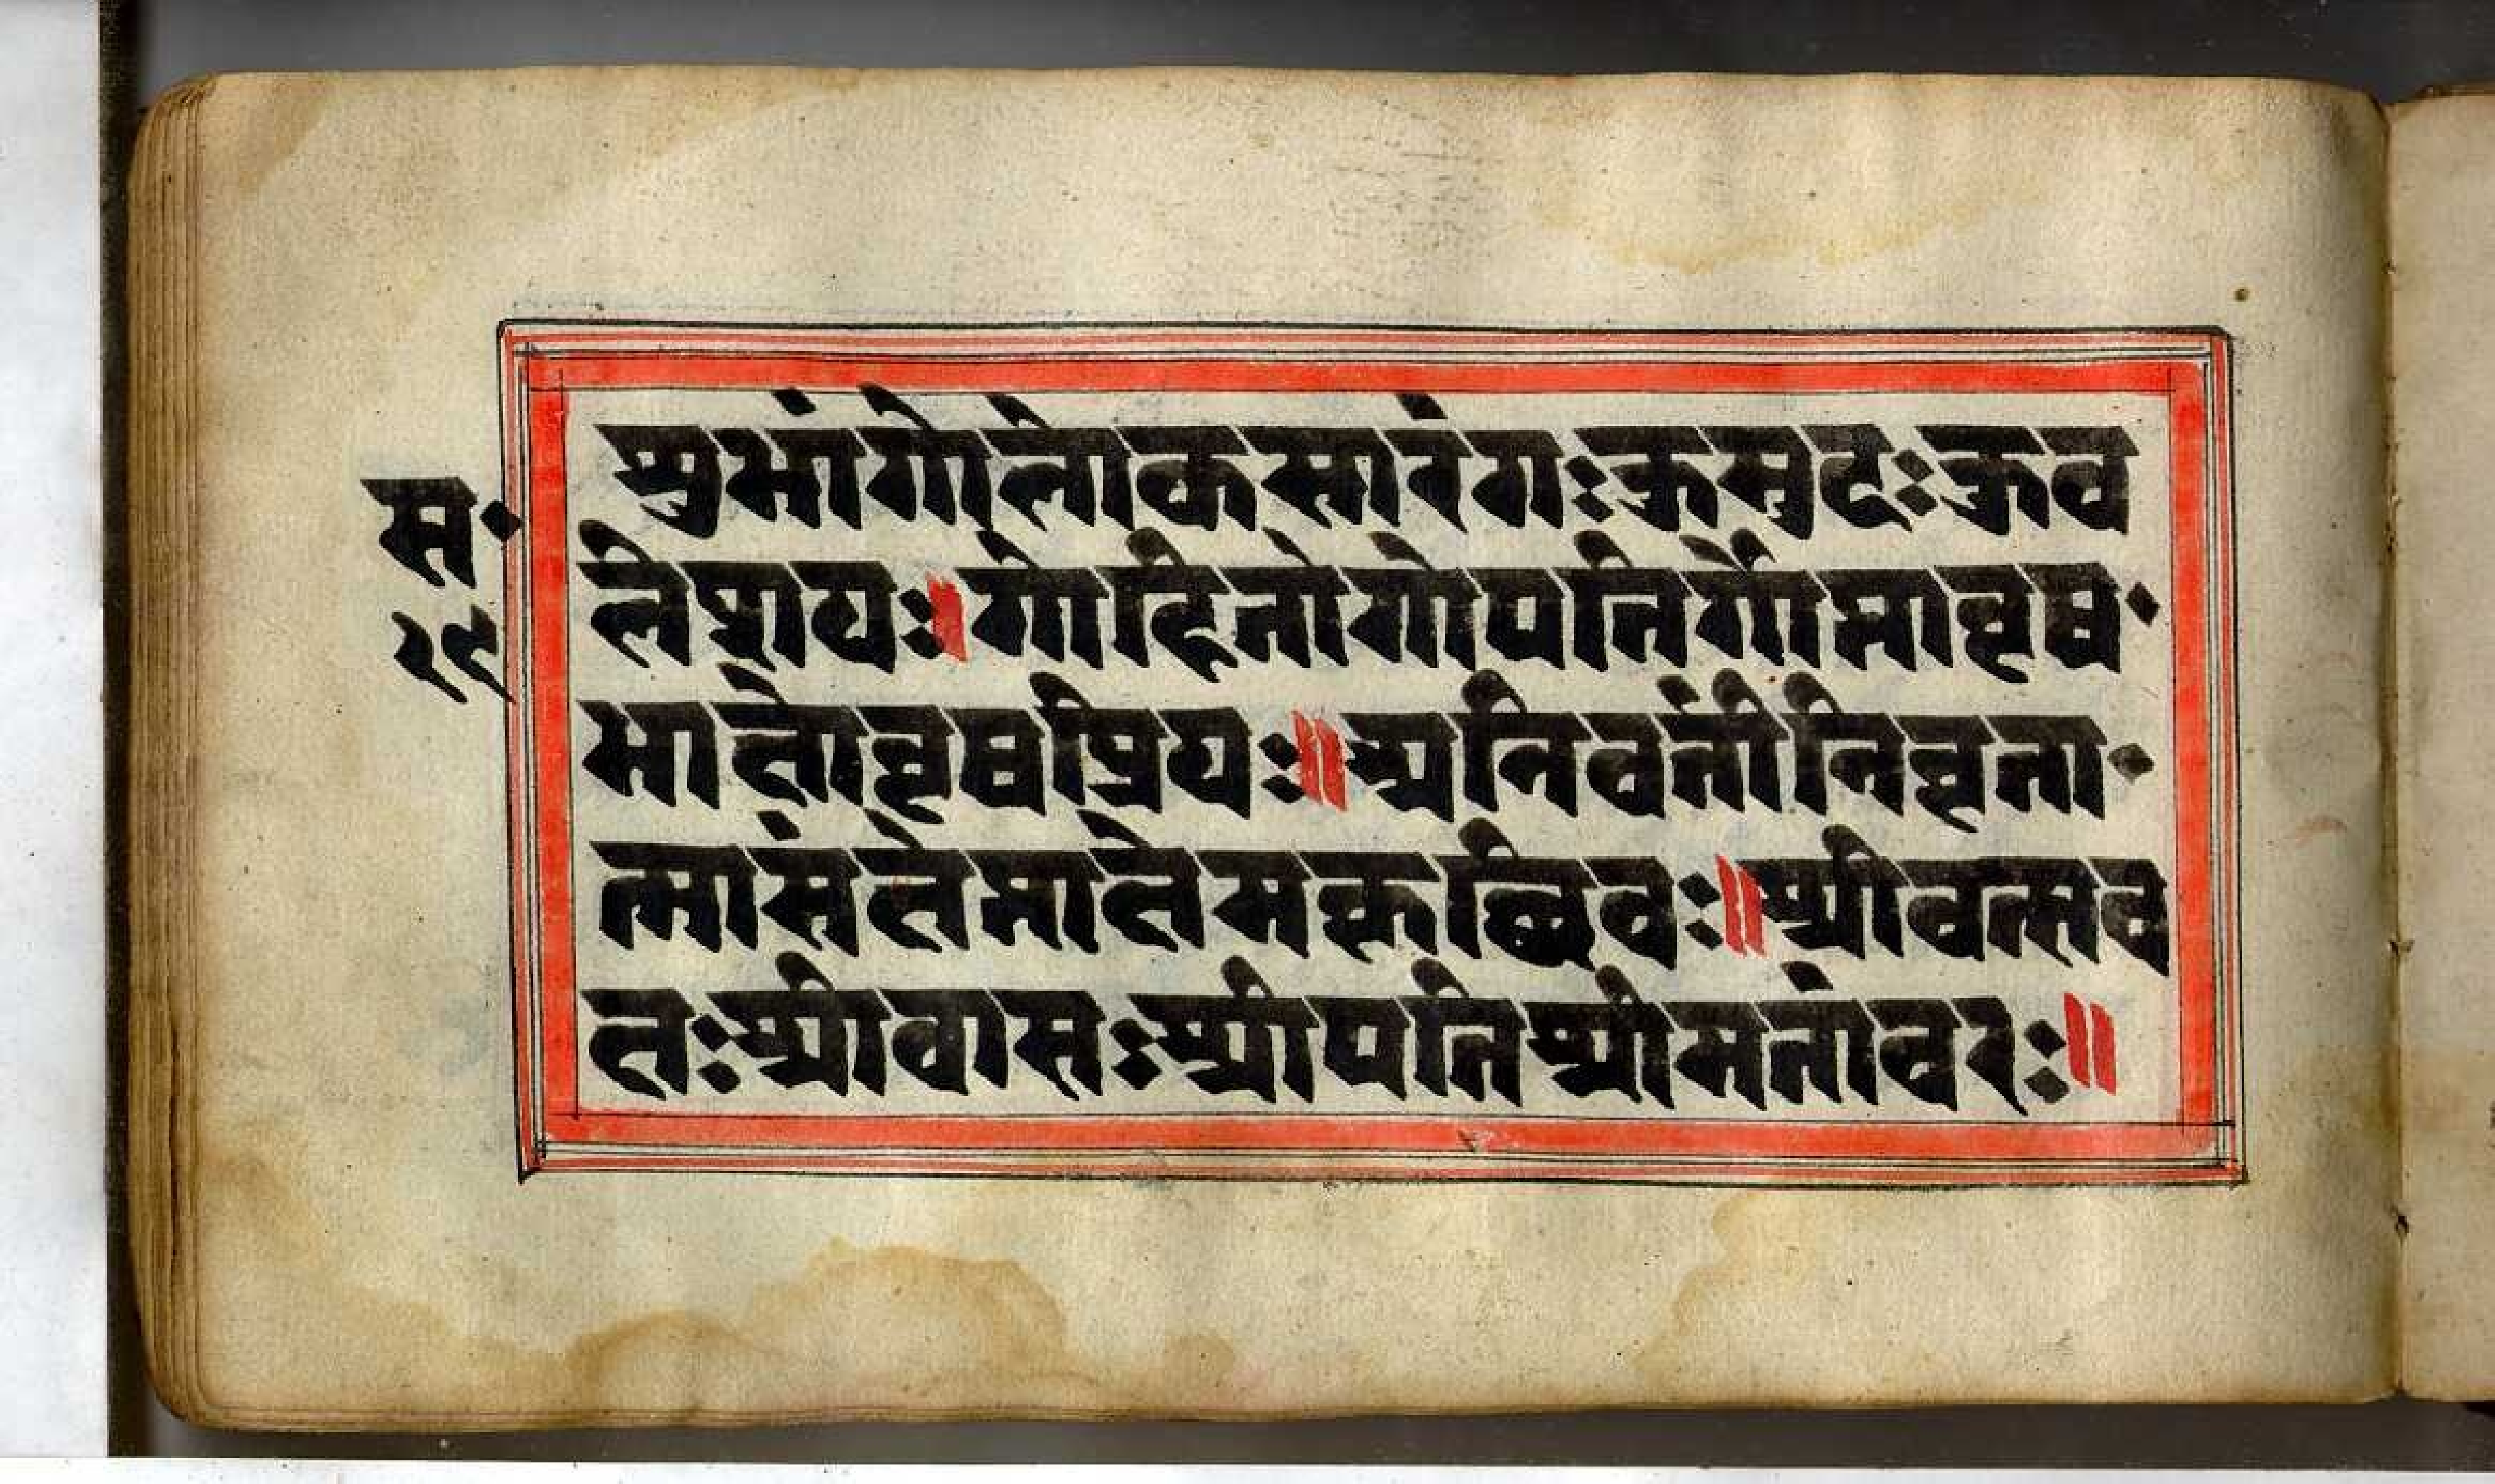 शुभांगोलोकसारंगःकुमुदःकुव
स॰
लेशयः।गोहितोगोपतिर्गोप्तावृष॰
२९
भाक्षोवृषप्रियः॥अनिवर्तीनिवृत्ता॰
त्मासंक्षेप्ताक्षेमकृछिवः॥श्रीवत्सव
क्षःश्रीवासःश्रीपतिश्रीमतांवरः॥